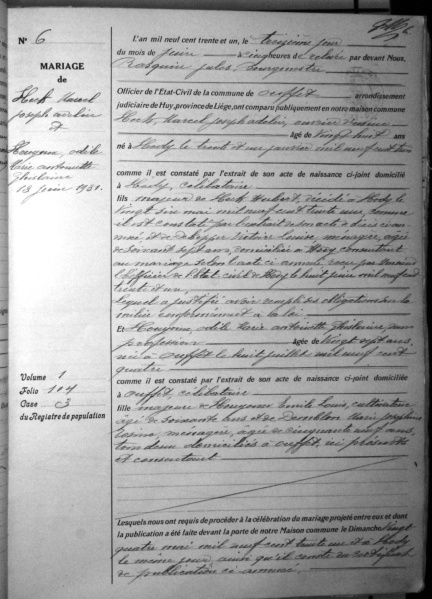 N° 6
MARIAGE
de
Herk Marcel
Joseph
et
Houyoux, odile
Marie antoinette
Ghislaine
13 juin 1931.
Volume 1
Folio 104
Case 3
du Registre de population
L'an mil neuf cent trente et un, le treizième jour
du mois de juin à vingt heures de relevée par devant Nous,
Rosquin Jules, bourgmestre
Officier de l'Etat-Civil de la commune de ouffet arrondissement
judiciaire de Huy, province de Liège, ont comparu publiquement en notre maison commune
Herk, Marcel Joseph
âgé de Vingt huit ans
né à Hody le trente et un janvier mil neuf cent trois
comme il est constaté par l'extrait de son acte de naissance ci-joint domicilié
à Hody, célibataire
fils majeur de Herk Hubert, décédé à Hody le
Vingt six mai mil neuf cent trente un, comme
il est constaté par l'extrait de son acte de décès ci-
annexé, et de Victoire Louise, ménagère, âgée
de soixante sept ans, domiciliée à Hody consentant
au mariage selon l'acte ci annexé reçu par Monsieur
l'officier de l'Etat civil de Hody le huit juin mil neuf cent
trente et un,
Lequel a justifié avoir rempli ses obligations sur la
milice conformément à la loi
Et Houyoux, odile Marie Antoinette Ghislaine, sans
profession âgée de Vingt sept ans,
née à ouffet le huit juillet mil neuf cent
quatre
comme il est constaté par l'extrait de son acte de naissance ci-joint domiciliée
à ouffet, célibataire
fille majeure de Houyoux Emile Louis, cultivateur
âgé de soixante ans et de Marie Joséphine
ménagère, âgée de cinquante neuf ans,
tous deux domiciliés à ouffet, ici présents
et consentant
Lesquels nous ont requis de procéder à la célébration du mariage projeté entre eux et dont
la publication a été faite devant la porte de notre Maison commune le Dimanche Vingt
quatre mai mil neuf cent trente un et à Hody
le même jour, ainsi qu'il conste du certificat
de publication ci annexé.